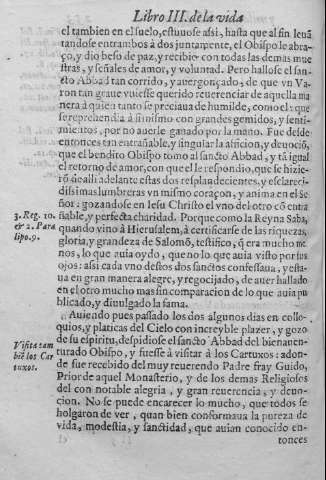 Libro III. de la vida
el tambien en el suelo, estuuose assi, hasta que al fin leuã
tandose entrambos à dos juntamente, el Obispo le abra-
ço, y dio beso de paz, y recibiò con todas las demas mue
stras, y señales de amor, y voluntad. Pero hallose el san-
cto Abbad tan corrido, y auergonçado, de que vn Va-
ron tan graue vuiesse querido reuerenciar de aquella ma
nera à quien tanto se preciaua de humilde, como el: que
se reprehendia à si mismo con grandes gemidos, y senti-
mientos, por no auerle ganado por la mano. Fue desde
entonces tan entrañable, y singular la aficion, y deuociõ,
que el bendito Obispo tomo al sancto Abbad, y tã igual
el retorno de amor, con que el le respondio, que se hizie-
rõ de alli adelante estas dos resplandecientes, y esclareci-
dissimas lumbreras vn mismo coraçon, y anima en el Se
ñor: gozandose en Iesu Christo el vno del otro cõ entra
ñable, y perfecta charidad. Porque como la Reyna Saba,
quando vino à Hierusalem, à certificarse de las riquezas,
gloria, y grandeza de Salomõ, testifico, q̃ era mucho me
nos, lo que auia oydo, que no lo que auia visto por sus
ojos: assi cada vno destos dos sanctos confessaua, y esta-
ua en gran manera alegre, y regocijado, de auer hallado
en el otro mucho mas sin comparacion de lo que auia pu
blicado, y diuulgado la fama.
3. Reg. 10.
& 2. Para
lipo. 9.
Auiendo pues passado los dos algunos dias en collo-
quios, y platicas del Cielo con increyble plazer, y gozo
de su espiritu, despidiose el sancto Abbad del bienauen-
turado Obispo, y fuesse à visitar à los Cartuxos: adon-
de fue recebido del muy reuerendo Padre fray Guido,
Prior de aquel Monasterio, y de los demas Religiosos
del con notable alegria, y gran reuerencia, y deuo-
cion. No se puede encarecer lo mucho, que todos se
holgaron de ver, quan bien conformaua la pureza de
vida, modestia, y sanctidad, que auian conocido en-
tonces
Visita tam
biẽ los Car
tuxos.